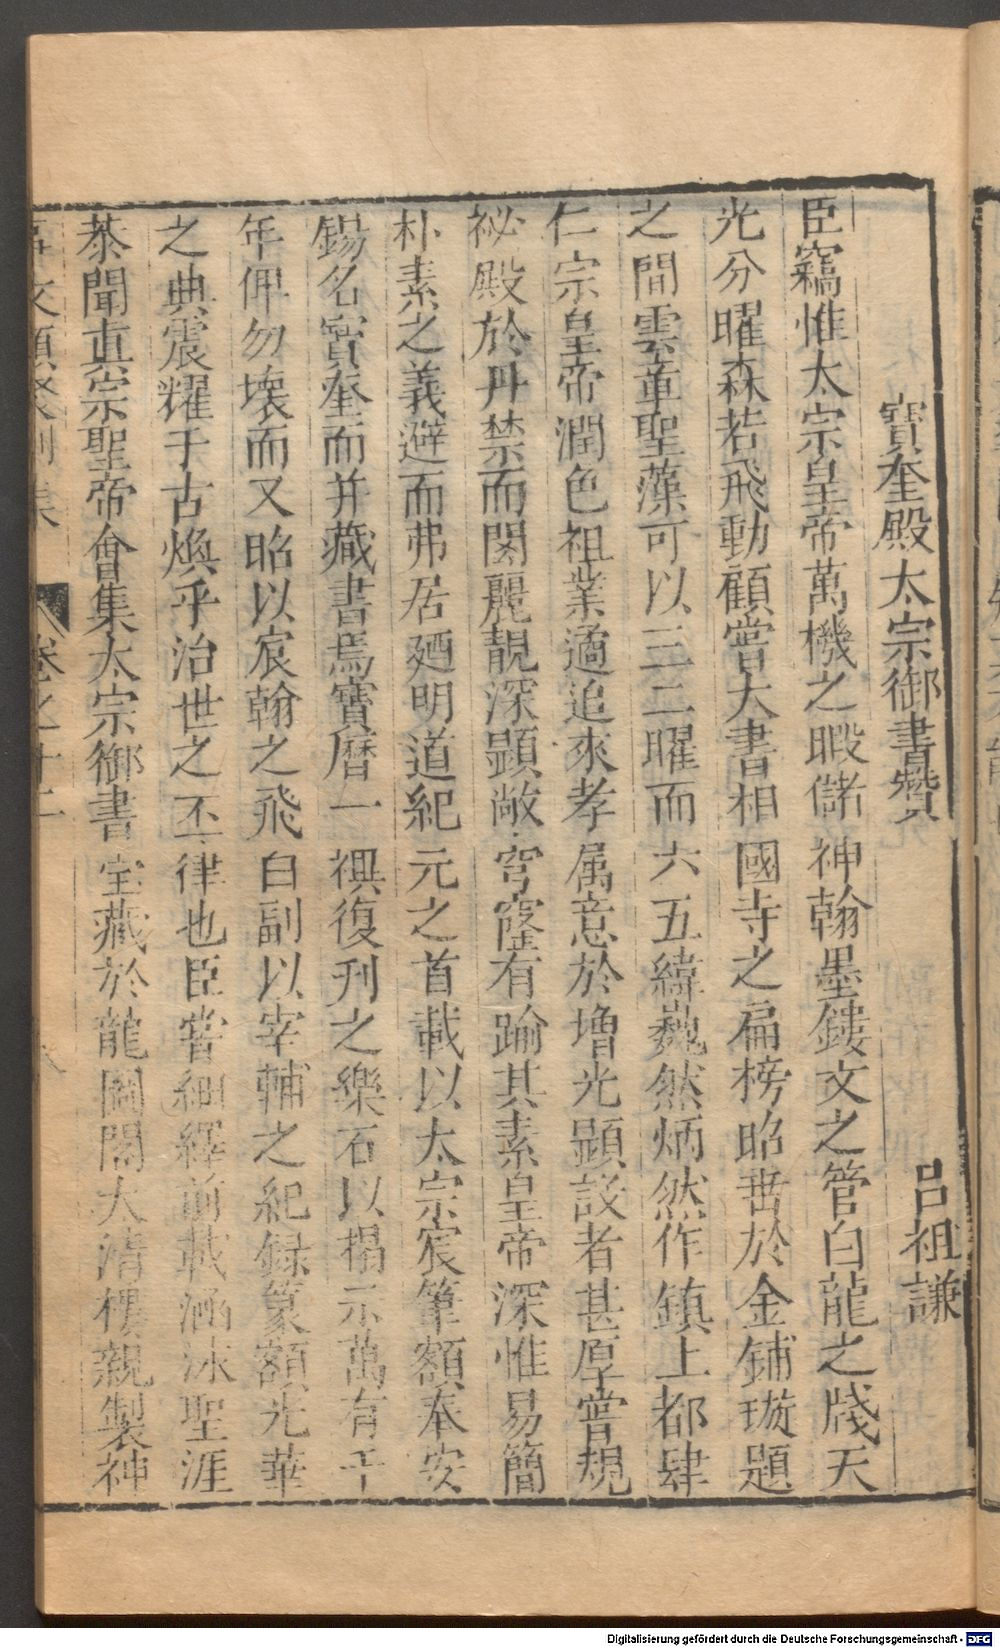 寶奎殿太宗御書贊
呂祖謙
臣竊惟太宗皇帝萬機之暇儲神翰墨鏤文之管白龍之牋天
光分曜森若飛動顧嘗大書相國寺之扁榜昭垂於金鋪璇題
之間雲章聖藻可以三二曜而六五緯巍然炳然作鎮上都肆
仁宗皇帝潤色祖業遹追來孝属意於增光顯設者甚厚嘗規
祕殿於丹禁而閎麗靚深顯敞穹窿有踰其素皇帝深惟易簡
朴素之義避而弗居廼明道紀元之首載以太宗宸筆額奉安
錫名寶奎而并藏書焉寶曆一禩復刊之樂石以榻示萬有千
年俾勿壊而又昭以宸翰之飛白副以宰輔之紀録篆額光華
之典震耀于古煥乎治世之丕律也臣嘗紬繹前載涵泳聖涯
恭聞真宗聖帝會集太宗御書宝藏於龍圖閣太清樓親製神
卷之十二
Digitalisierung gefördert durch die Deutsche Forschungsgemeinschaft - DFG